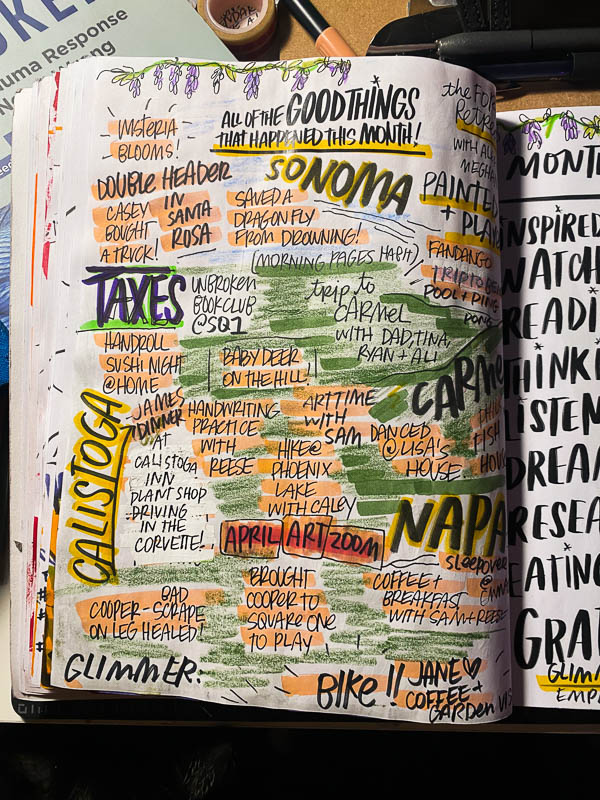 uma Response
ALL OF THE GOOD THINGS
THAT HAPPENED THIS MONTH!
WISTERIA
BLOOMS!
DOUBLE HEADER
IN
SANTA
ROSA
CASEY
BOUGHT
A TRUCK!
SONOMA
SAVED A
DRAGONFLY
FROM DROWNING!
(MORNING PAGES HABIT)
the
WITH
PAINTED
+ PLAY
FANDANGO
TRIP TO
POOL + PING
PONG
TAXES
UNBROKEN
BOOKCLUB
@SQ1
trip to
CARMEL
WITH DAD, TINA,
RYAN + ALI
HANDROLL
SUSHI NIGHT
@HOME
BABY DEER
ON THE HILL!
CARME
FISH
HOU
CALISTOGA
JAMES
DINNER
AT
CALISTOGA
INN
PLANT SHOP
DRIVING
IN THE
CORVETTE!
HANDWRITING
PRACTICE
WITH
REESE
ART TIME
WITH
SAM
DANCED
@ LISA'S
HOUSE
HIKE @
PHOENIX
LAKE
WITH CALEY
NAPA
SLEEPOVER
@
APRIL ART ZOOM
COFFEE +
BREAKFAST
WITH SAM + REESE
BAD
COOPER-SCRAPE
ON LEG HEALED!
BROUGHT
COOPER TO
SQUARE ONE
TO PLAY
GLIMMER:
BIKE!!
JANE
COFFEE +
GARDEN VIS
MONT
INSPIRED
WATCH
READI
THINKI
LISTEN
DREAM
RESEA
EATING
GRAT
GLIMM
EMP